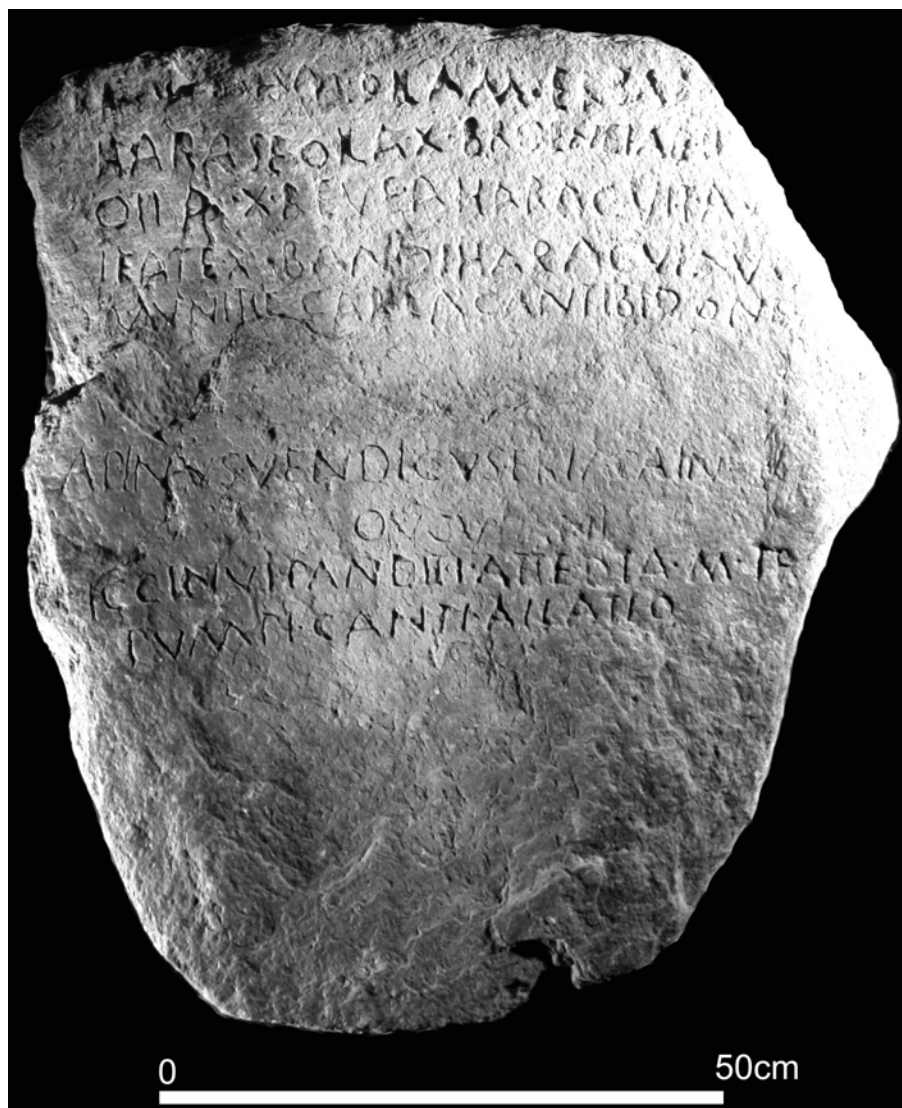 OILAM·ERBAM
HARASE OILA X·BROENEIAE H
OILA·X·REVE AHARACVI T AV
IEATE X·BANDI HARACVI AV
MVNITIE CARIA CANTIBIDONE
APINVS VENDICVS ERIACAINV
OVOVIANI
ICCINVI PANDITI·ATTEDIA·M·TR
PVMPI·CANTI·AILATIO